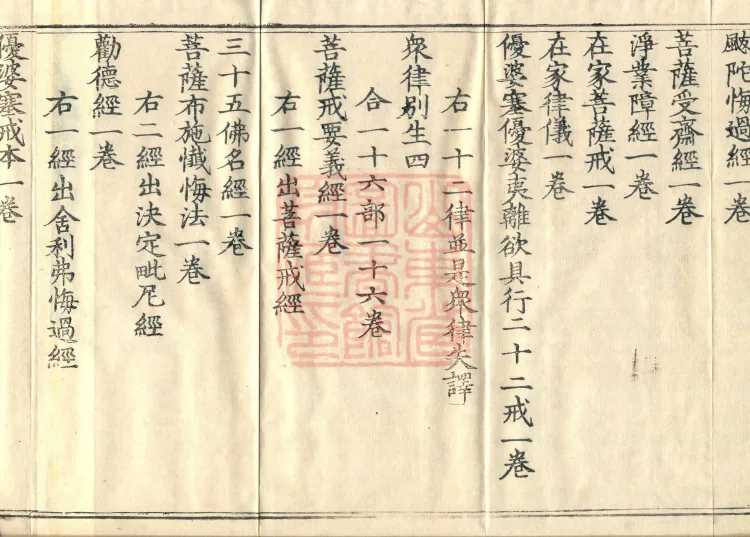 颰陀悔過經一卷
菩薩受齋經一卷
淨業障經一卷
在家菩薩戒一卷
在家律儀一卷
優婆塞優婆夷離欲具行二十二戒一卷
右一十二律並是衆律失譯
衆律別生四
合一十六部一十六卷
菩薩戒要義經一卷
右一經出菩薩戒經
三十五佛名經一卷
菩薩布施懺悔法一卷
右二經出決定毗尼經
勸德經一卷
右一經出舍利弗悔過經
優婆塞戒本一卷
山東省
圖書館